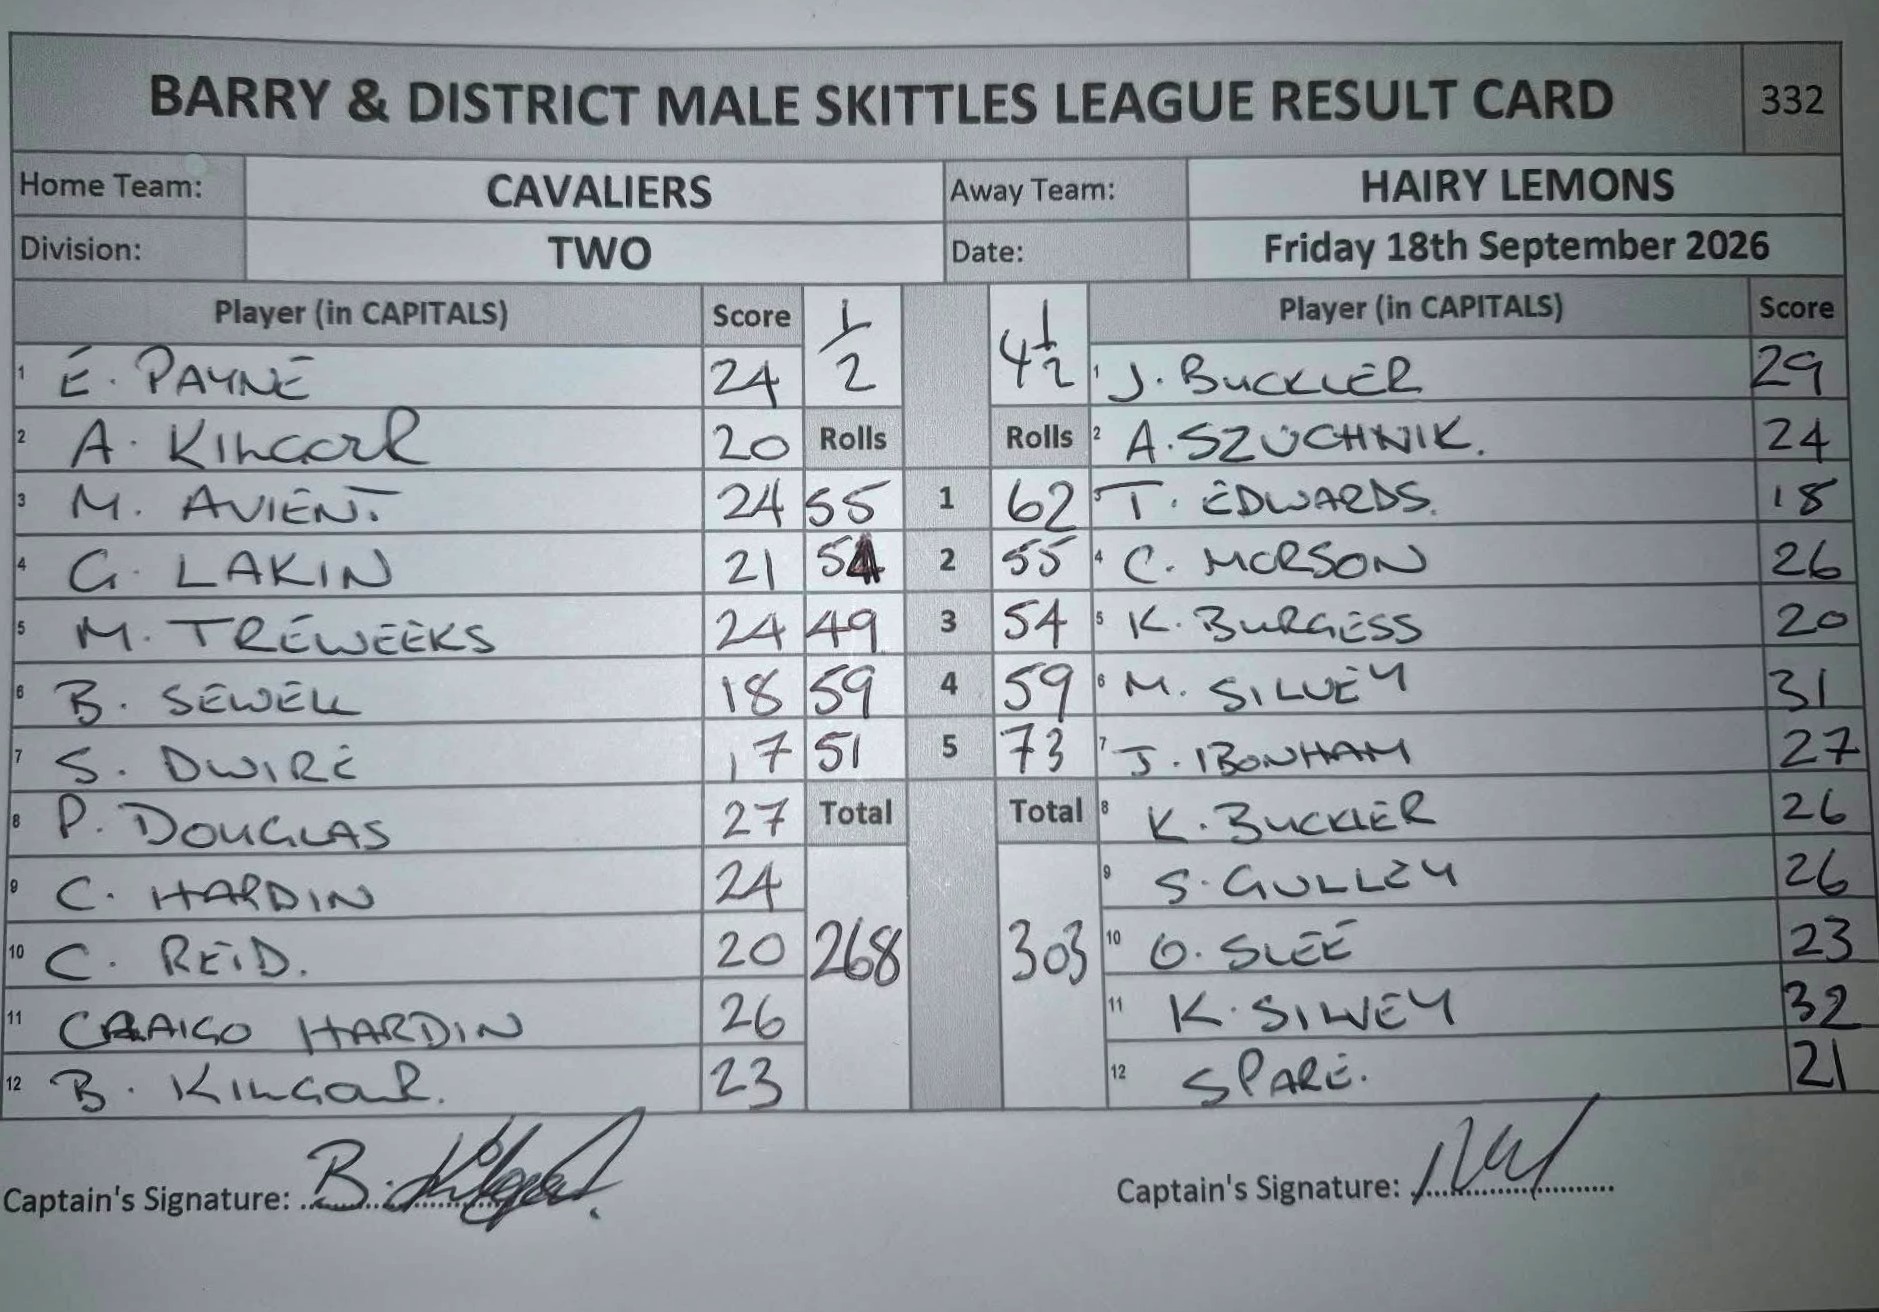 BARRY & DISTRICT MALE SKITTLES LEAGUE RESULT CARD 332
Home Team: CAVALIERS Away Team: HAIRY LEMONS
Division: TWO Date: Friday 18th September 2026
Player (in CAPITALS) Score 1/2 4 1/2 Player (in CAPITALS) Score
1 E. PAYNE 24 1 J. BUCKLER 29
2 A. KINGCOTT 20 Rolls Rolls 2 A. SZUCHNIK. 24
3 M. AVIENT. 24 55 1 62 3 T. EDWARDS. 18
4 G. LAKIN 21 54 2 55 4 C. MORSON 26
5 M. TREWEEKS 24 49 3 54 5 K. BURGESS 20
6 B. SEWELL 18 59 4 59 6 M. SILVEY 31
7 S. DWIRE 17 51 5 73 7 J. BONHAM 27
8 P. DOUGLAS 27 Total Total 8 K. BUCKLER 26
9 C. HARDIN 24 9 S. GULLEY 26
10 C. REID. 20 268 303 10 O. SLEE 23
11 CRAIGO HARDIN 26 11 K. SILVEY 32
12 B. 23 12 SPARE. 21
Captain's Signature: B. Captain's Signature: